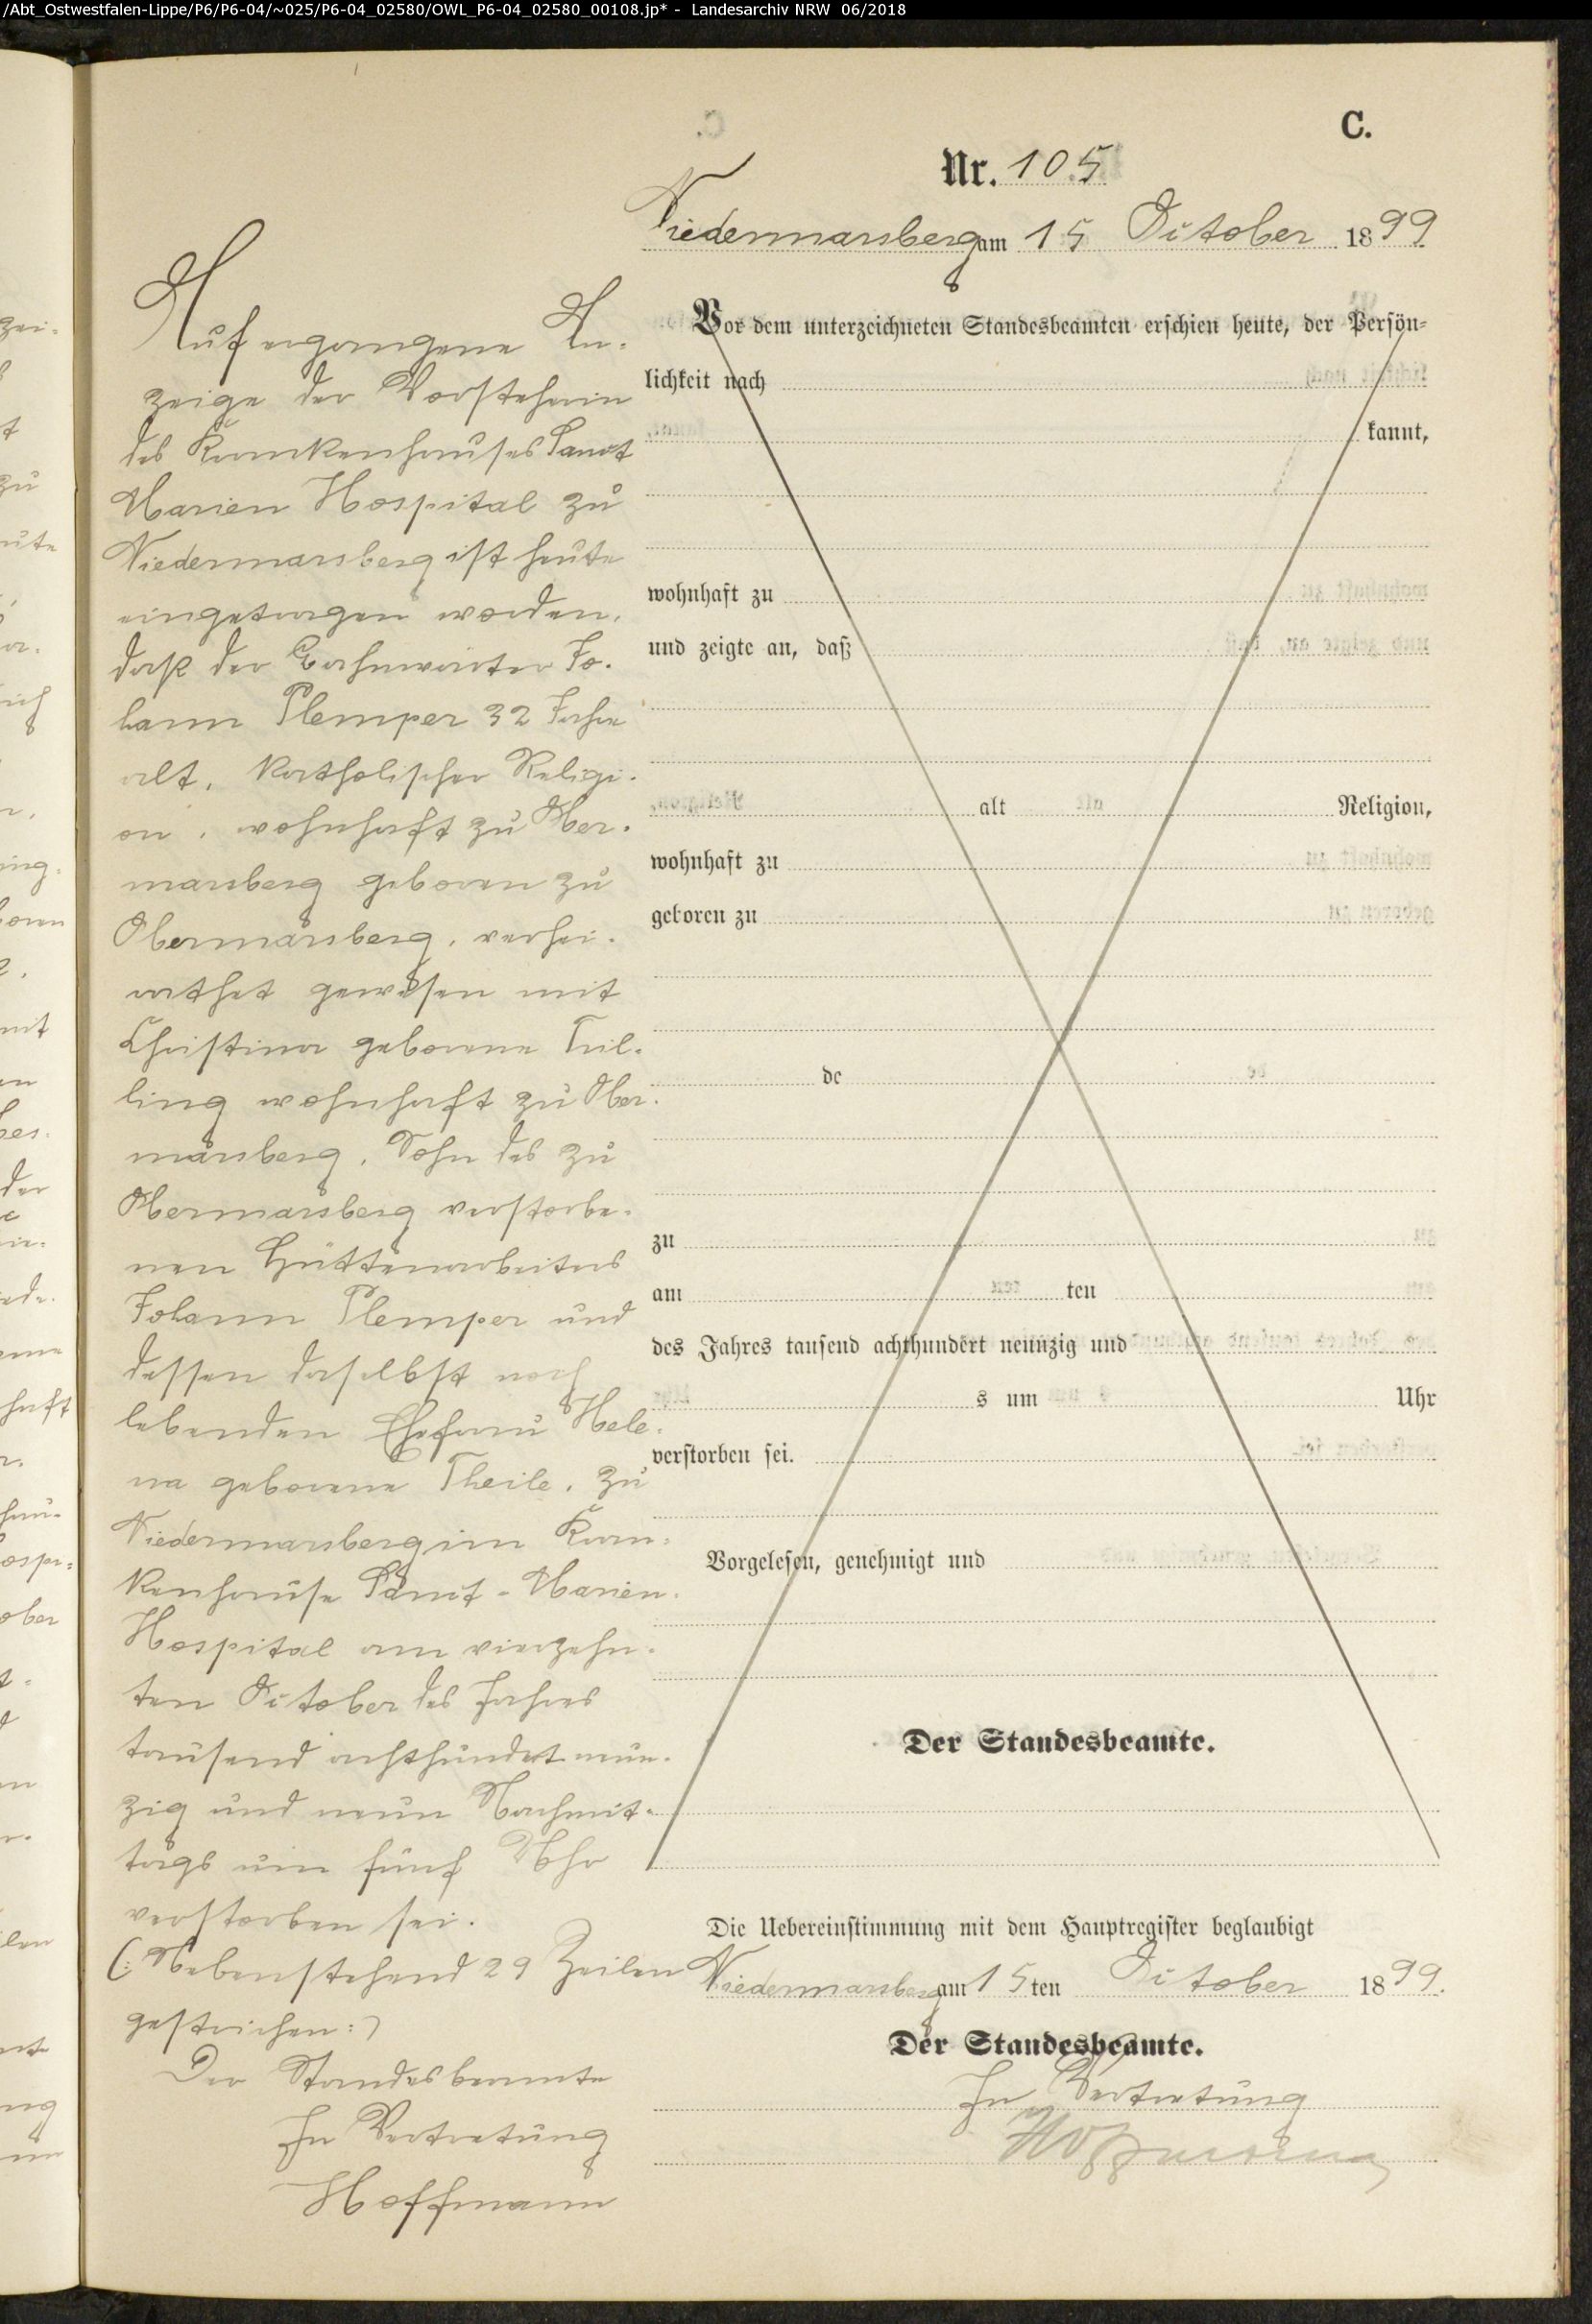 /Abt_Ostwestfalen-Lippe/P6/P6-04/~025/P6-04_02580/OWL_P6-04_02580_00108.jp* - Landesarchiv NRW 06/2018
C.
Nr. 105
Niedermarsberg am 15 October 1899
Auf ergangene An-
zeige der Vorsteherin
des Krankenhauses Sanct
Marien Hospital zu
Niedermarsberg ist heute
eingetragen worden,
daß der Bahnwärter Jo-
hann Plemper 32 Jahre
alt, katholischer Religi-
on, wohnhaft zu Ober-
marsberg geboren zu
Obermarsberg, verhei-
rathet gewesen mit
Christina geborene Tril-
ling wohnhaft zu Ober-
marsberg, Sohn des zu
Obermarsberg verstorbe-
nen Hüttenarbeiters
Johann Plemper und
dessen daselbst noch
lebenden Ehefrau Hele-
na geborene Theile, zu
Niedermarsberg im Kran-
kenhause Sanct-Marien-
Hospital am vierzehn-
ten October des Jahres
tausend achthundert neun-
zig und neun Nachmit-
tags um fünf Uhr
verstorben sei.
(: Nebenstehend 29 Zeilen
gestrichen :)
Der Standesbeamte
In Vertretung
Hoffmann
Vor dem unterzeichneten Standesbeamten erschien heute, der Persön-
lichkeit nach
kannt,
wohnhaft zu
und zeigte an, daß
alt Religion,
wohnhaft zu
geboren zu
de
zu
am ten
des Jahres tausend achthundert neunzig und
s um Uhr
verstorben sei.
Vorgelesen, genehmigt und
Der Standesbeamte.
Die Uebereinstimmung mit dem Hauptregister beglaubigt
Niedermarsberg am 15ten October 1899.
Der Standesbeamte.
In Vertretung
Hoffmann